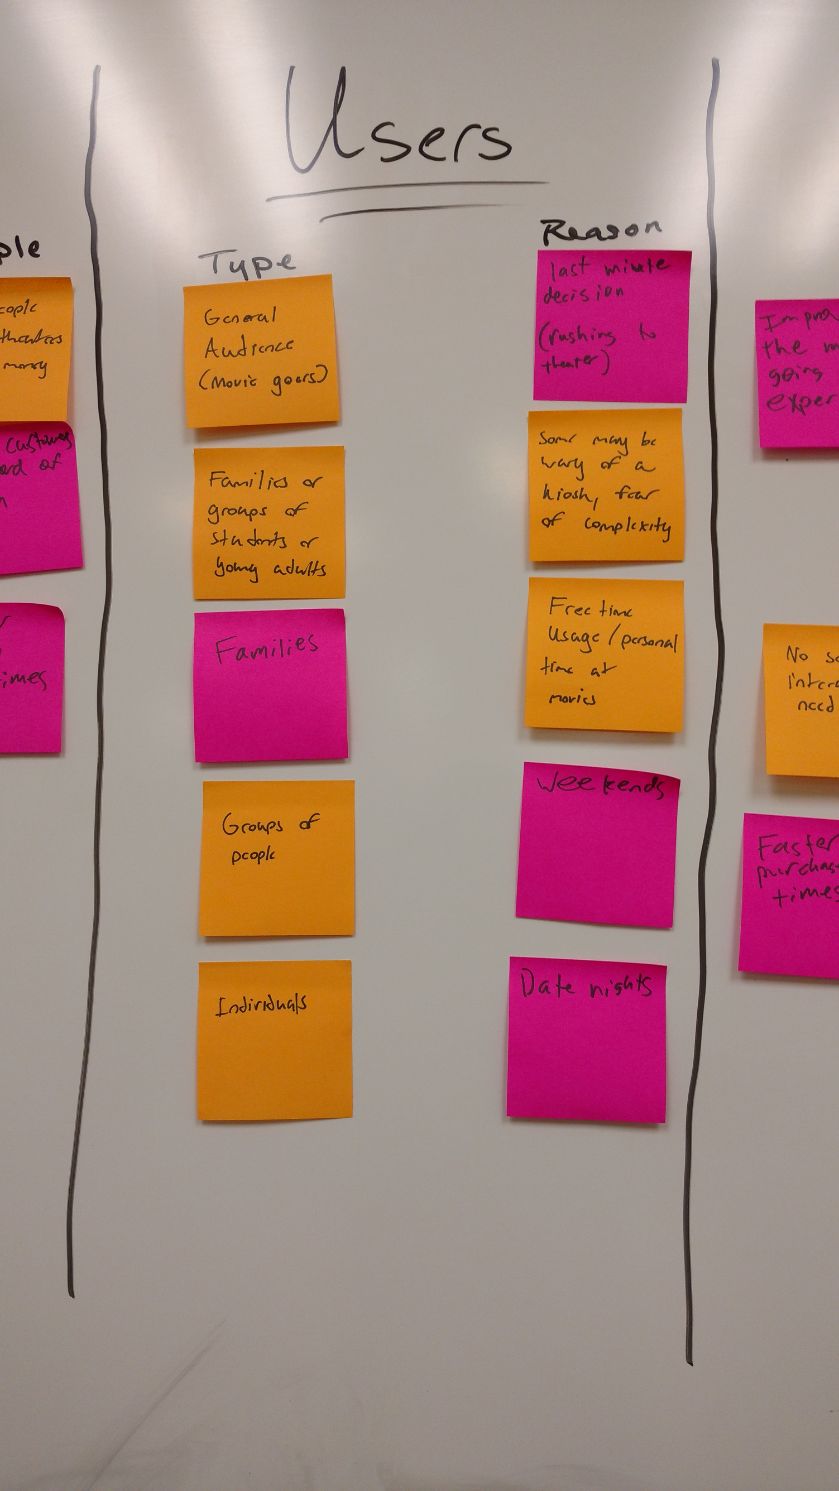 Users
ple
eople
theaters
money
customers
ord of
n
imes
Type
General
Audience
(Movie goers)
Families or
groups of
students or
young adults
Families
Groups of
people
Individuals
Reason
last minute
decision
(rushing to
theater)
Some may be
wary of a
kiosk, fear
of complexity
Free time
Usage/personal
time at
movies
Weekends
Date nights
Impro
the m
going
exper
No so
intera
need
Faster
purchas
times